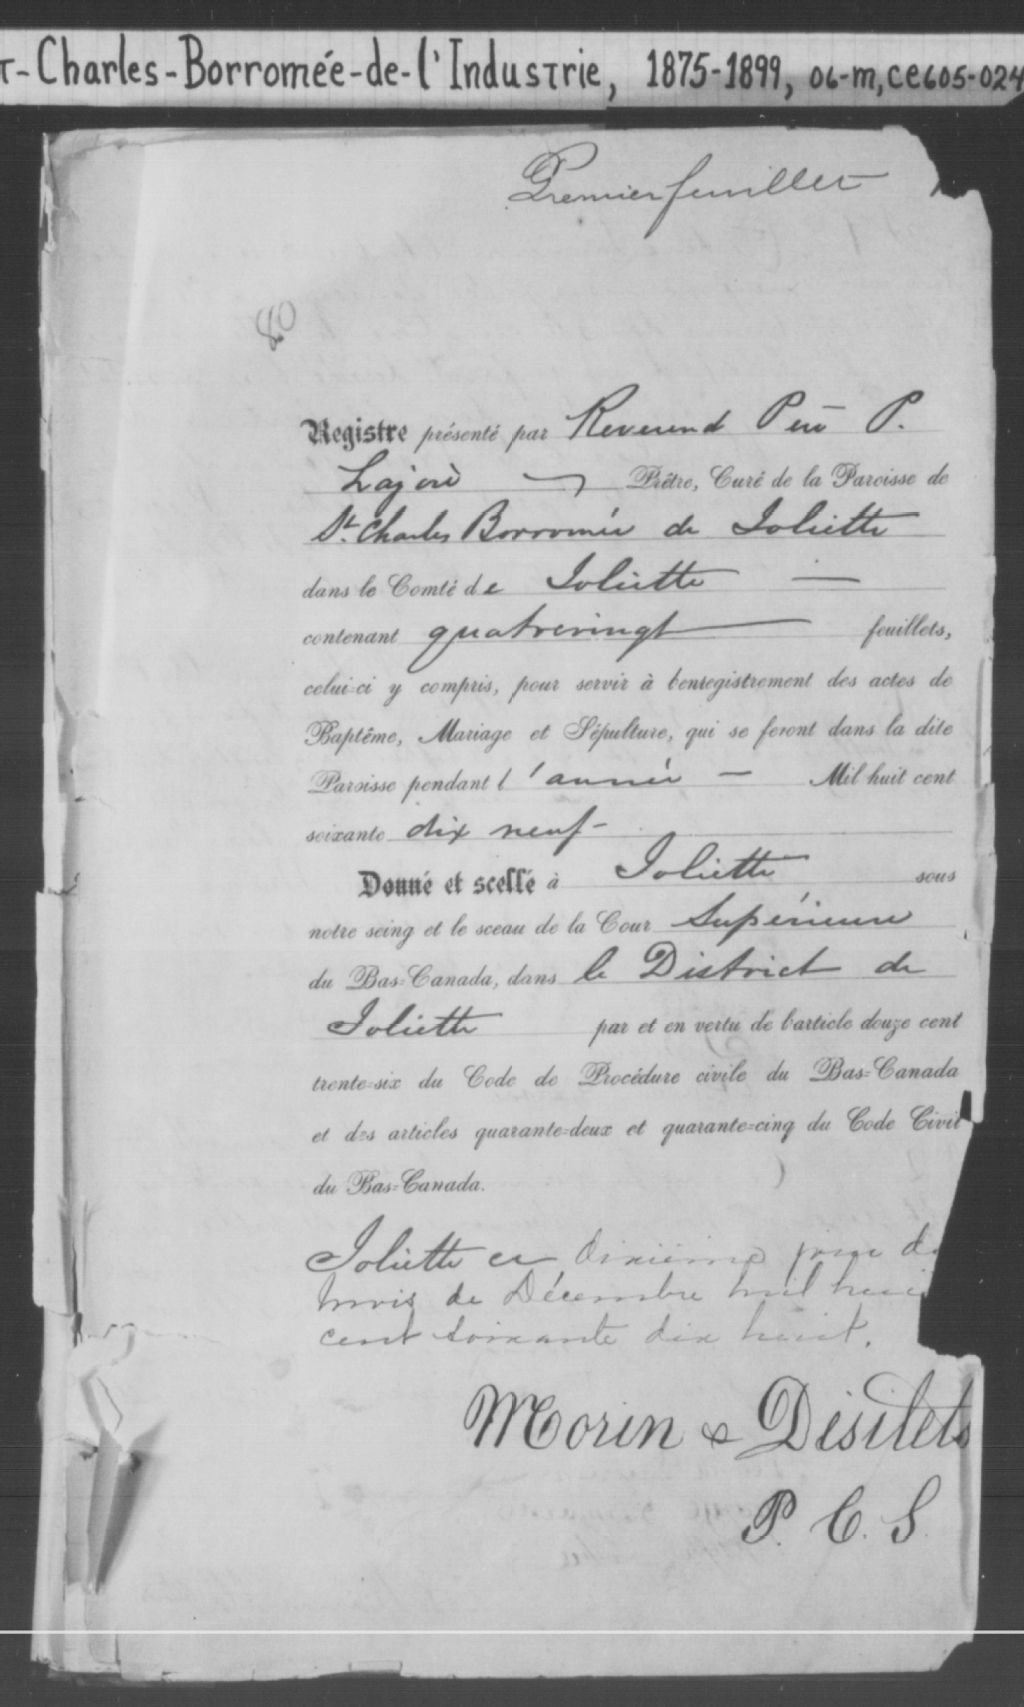 T-Charles-Borromée-de-l'Industrie, 1875-1899, 06-m, ce605-024
Premier feuillet
80
Registre présenté par Reverend Père P.
Lajoie Prêtre, Curé de la Paroisse de
St. Charles Borromée de Joliette
dans le Comté de Joliette —
contenant quatrevingt — feuillets,
celui-ci y compris, pour servir à l'enregistrement des actes de
Baptême, Mariage et Sépulture, qui se feront dans la dite
Paroisse pendant l'année — Mil huit cent
soixante dix neuf -
Donné et scellé à Joliette sous
notre seing et le sceau de la Cour Supérieure
du Bas-Canada, dans le District de
Joliette par et en vertu de l'article douze cent
trente-six du Code de Procédure civile du Bas-Canada
et des articles quarante-deux et quarante-cinq du Code Civil
du Bas-Canada.
Joliette ce dixième jour de
mois de Décembre mil huit
cent soixante dix huit.
Morin & Désilets
P. C. S.